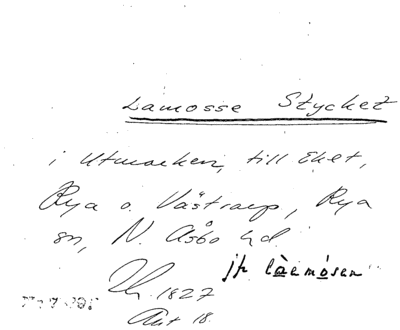 Lamosse Stycket
i Utmarken, till Eket,
Rya o. Västrarp, Rya
sn, N. Åsbo hd.
jfr làemòsen
1827
Akt 18.